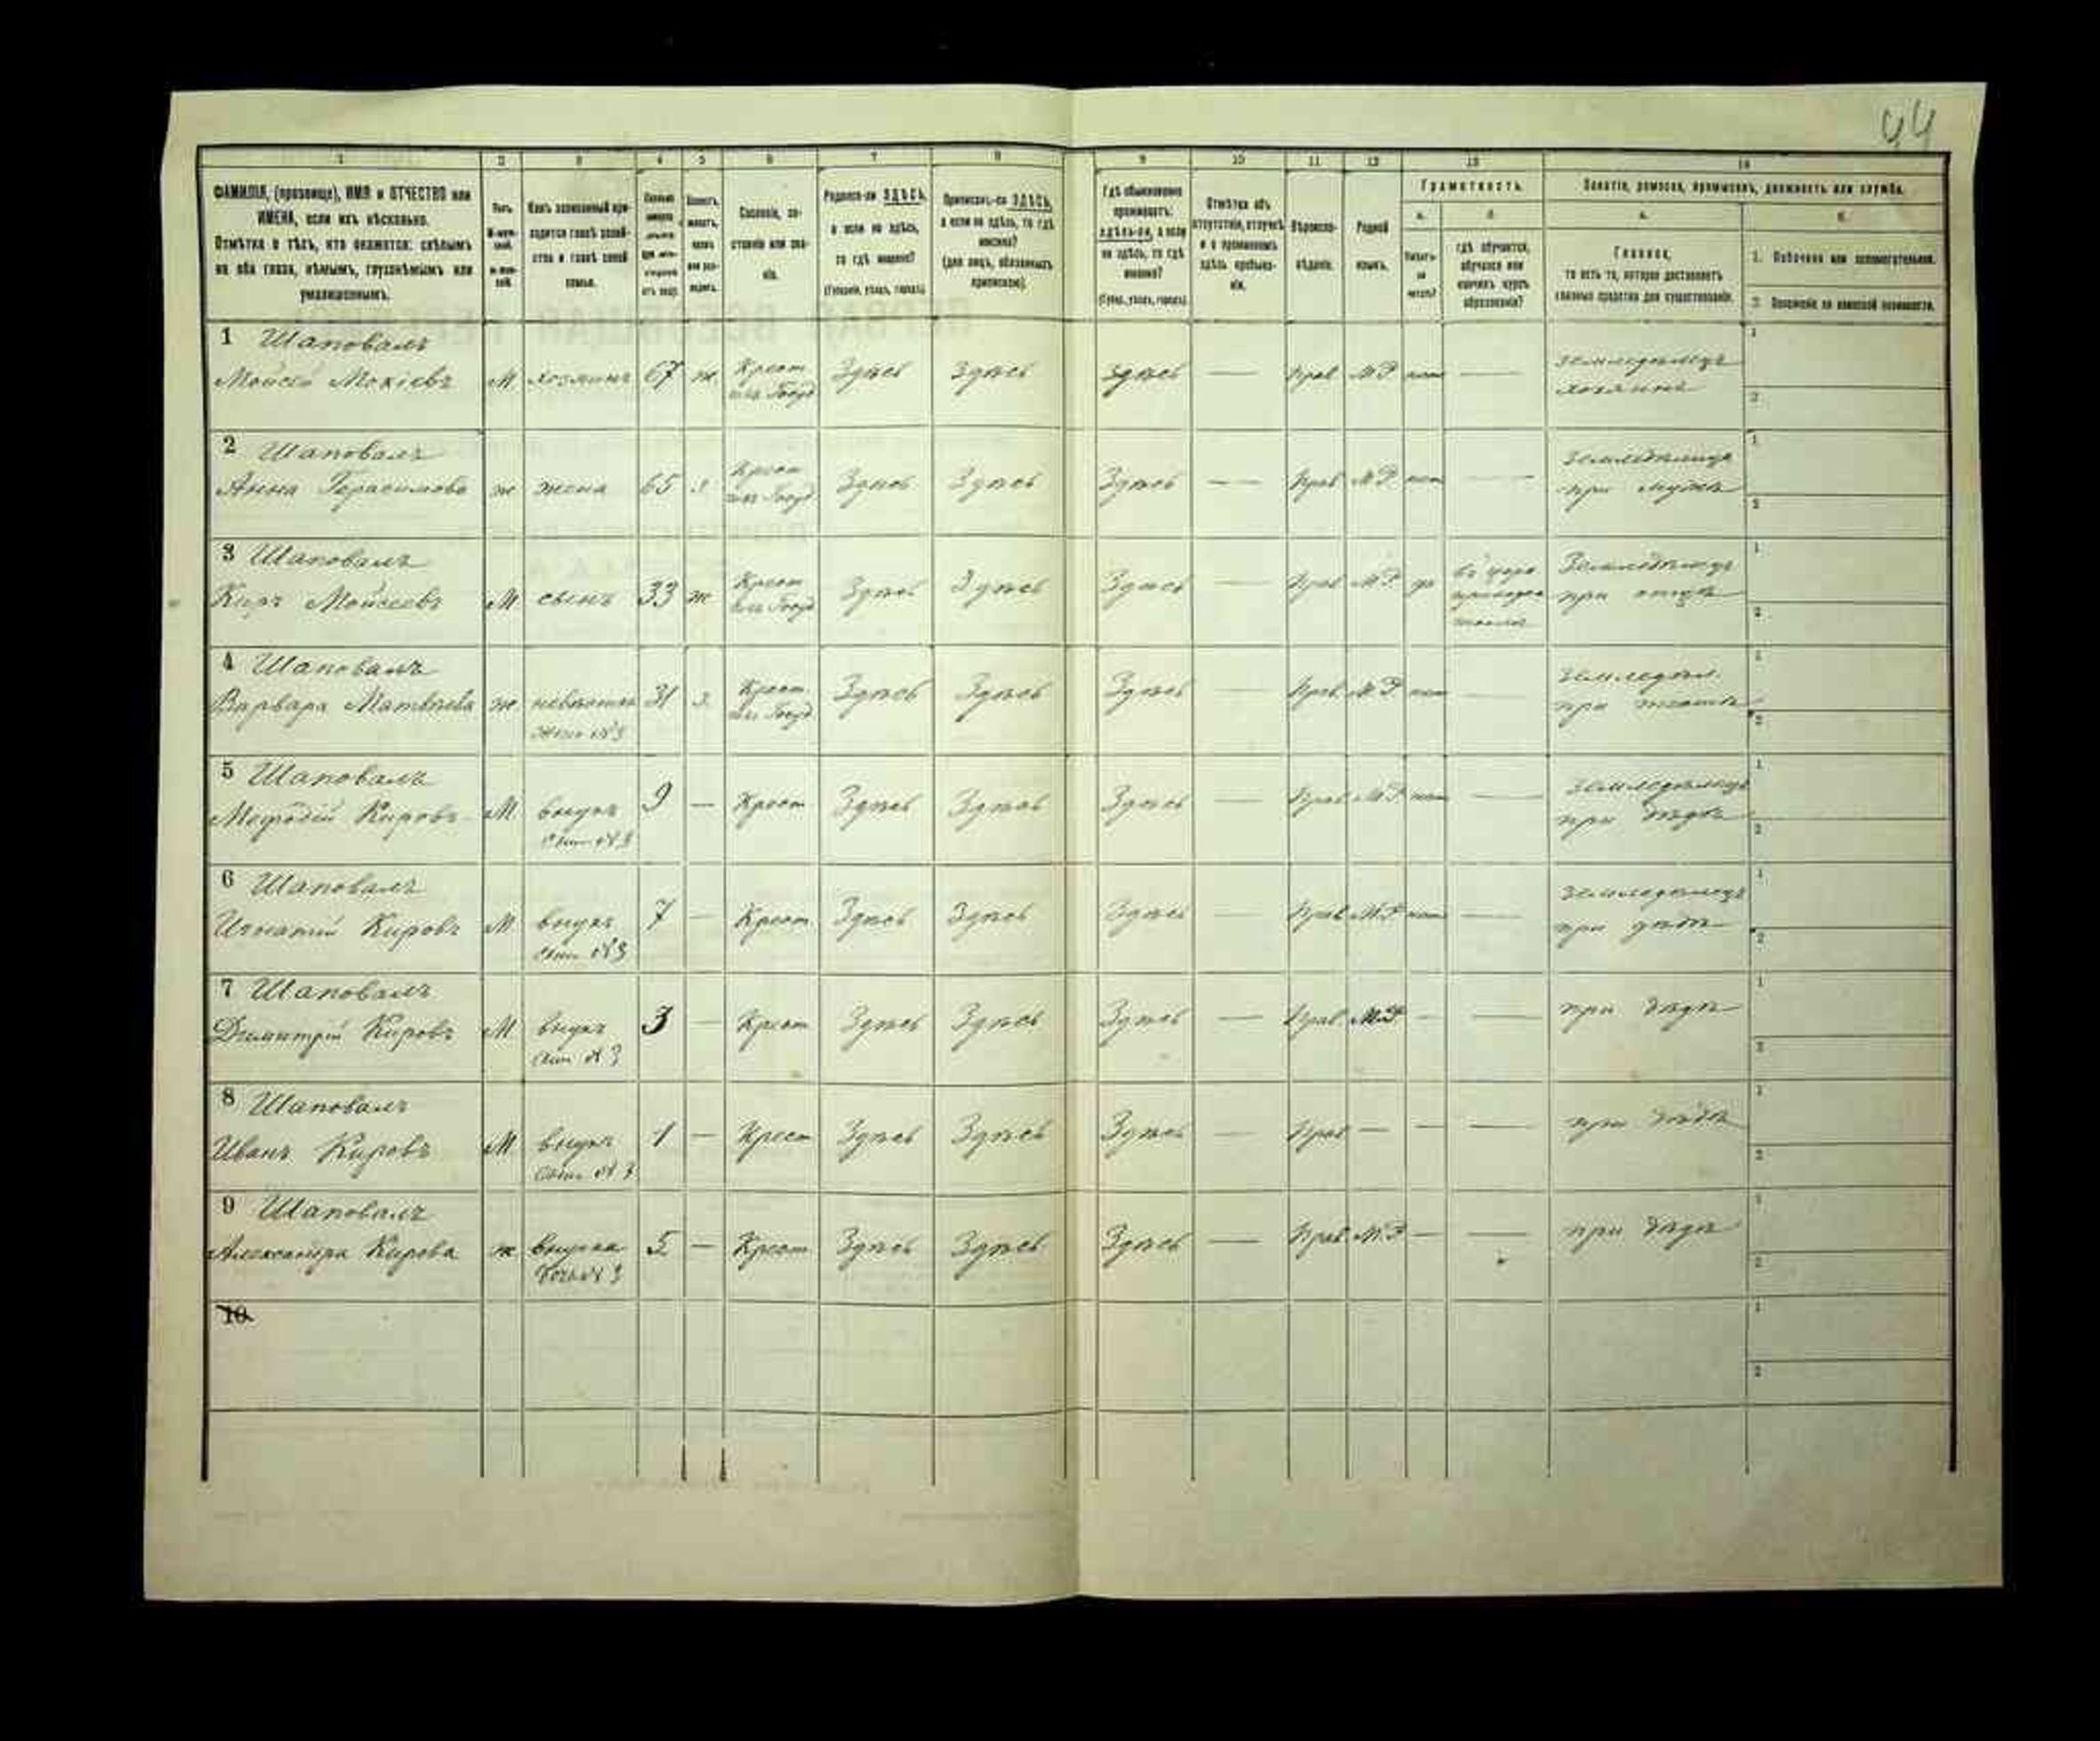 44
1 2 3 4 5 6 7 8 9 10 11 12 13 14
ФАМИЛІЯ, (прозвище), ИМЯ и ОТЧЕСТВО или
ИМЕНА, если ихъ нѣсколько.
Отмѣтка о тѣхъ, кто окажется: слѣпымъ
на оба глаза, нѣмымъ, глухонѣмымъ или
умалишеннымъ.
Полъ.
Какъ записанный при-
ходится главѣ хозяй-
ства и главѣ своей
семьи.
Сословіе, со-
стояніе или зва-
ніе.
Родился-ли ЗДѢСЬ,
а если не здѣсь,
то гдѣ именно?
(Губернія, уѣздъ, городъ).
Приписанъ-ли ЗДѢСЬ,
а если не здѣсь, то гдѣ
именно?
(для лицъ, обязанныхъ
припискою).
Гдѣ обыкновенно
проживаетъ:
здѣсь-ли, а если
не здѣсь, то гдѣ
именно?
(Губ., уѣздъ, городъ).
Отмѣтка объ
отсутствіи, отлучкѣ
и о временномъ
здѣсь пребыва-
ніи.
Вѣроиспо-
вѣданіе.
Родной
языкъ.
Грамотность.
а.
Умѣетъ-
ли
читать?
б.
гдѣ обучается,
обучался или
кончилъ курсъ
образованія?
Занятіе, ремесло, промыселъ, должность или служба.
а.
Главное,
то есть то, которое доставляетъ
главныя средства для существованія.
б.
1. Побочное или вспомогательное.
2. Положеніе по воинской повинности.
1 Шаповалъ
Мойсей Мокіевъ М хозяинъ 67 ж Крест. Здѣсь Здѣсь Здѣсь — Прав М.Р. нет —
земледѣлецъ
хозяинъ
1
2
2 Шаповалъ
Анна Герасимова ж жена 65 з Крест. Здѣсь Здѣсь Здѣсь — Прав М.Р. нет —
земледѣлица
при мужѣ
1
2
3 Шаповалъ
Киръ Мойсеевъ М сынъ 33 ж Крест. Здѣсь Здѣсь Здѣсь — Прав М.Р. да
въ церк
приходск
школѣ
Земледѣлецъ
при отцѣ
1
2
4 Шаповалъ
Варвара Матвѣева ж невѣстка 31 з Крест. Здѣсь Здѣсь Здѣсь — Прав М.Р. нет —
жена №3
земледѣл.
при
1
2
5 Шаповалъ
Мефодій Кировъ М внукъ 9 — Крест Здѣсь Здѣсь Здѣсь — Прав М.Р. нет —
сын №3
земледѣлецъ
при дѣдѣ
1
2
6 Шаповалъ
Игнатій Кировъ М внукъ 7 — Крест Здѣсь Здѣсь Здѣсь — Прав М.Р. нет —
сын №3
земледѣлецъ
при дѣдѣ
1
2
7 Шаповалъ
Димитрій Кировъ М внукъ 3 — Крест Здѣсь Здѣсь Здѣсь — Прав М.Р. — — при дѣдѣ
сын №3
1
2
8 Шаповалъ
Иванъ Кировъ М внукъ 1 — Крест Здѣсь Здѣсь Здѣсь — Прав — — — при дѣдѣ
сын №3
1
2
9 Шаповалъ
Александра Кирова ж внучка 5 — Крест Здѣсь Здѣсь Здѣсь — Прав М.Р. — — при дѣдѣ
дочь №3
1
2
10
1
2